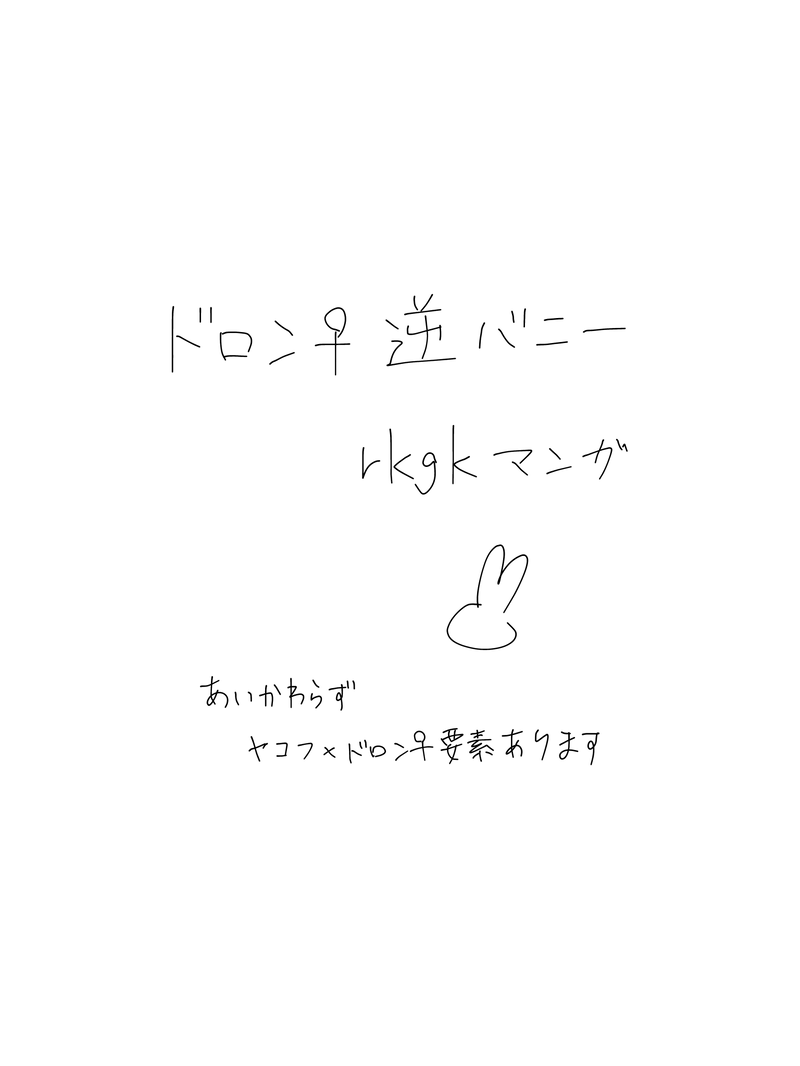 ドロン♀ 逆バニー
rkgk マンガ
あいかわらず
ヤコフ×ドロン♀要素あります